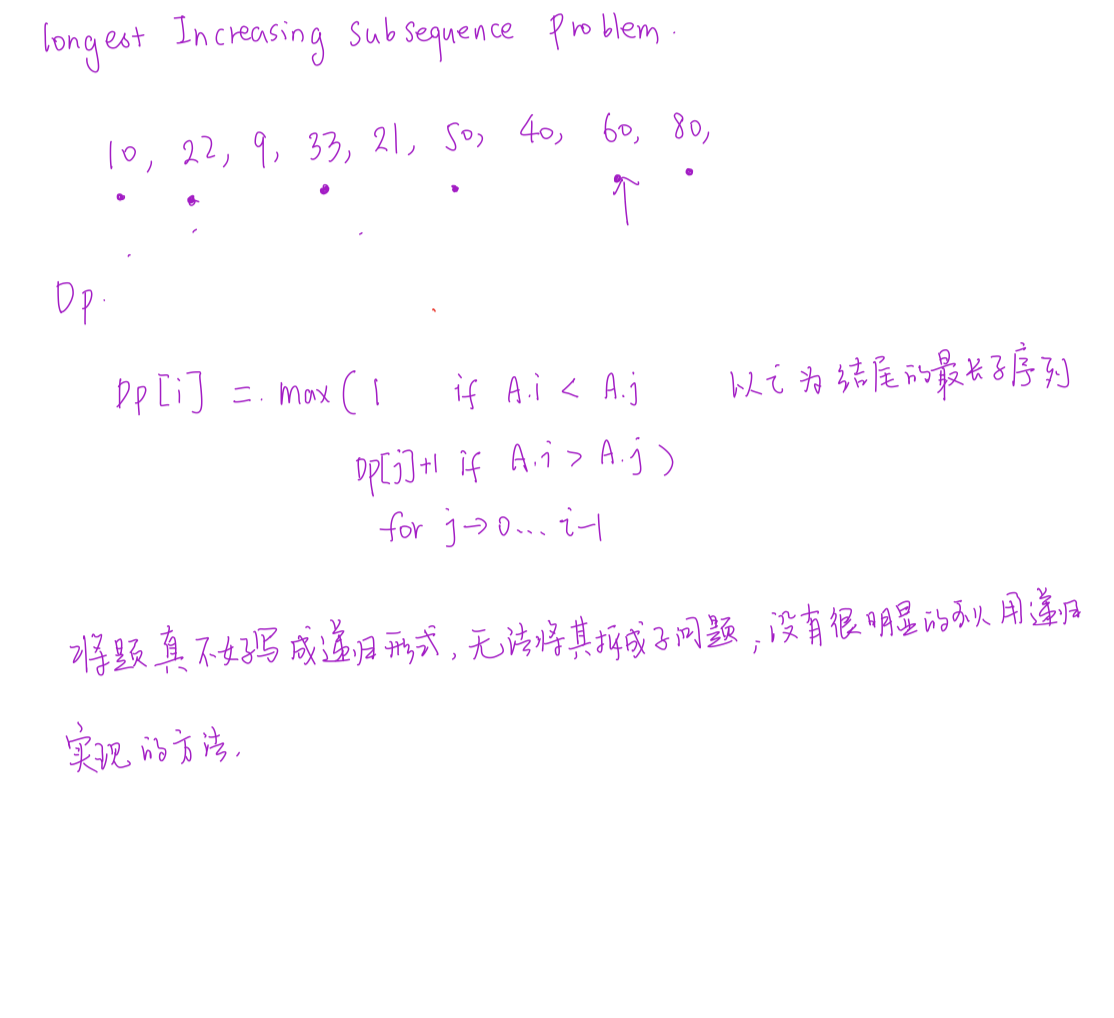 longest Increasing Subsequence Problem.
10, 22, 9, 33, 21, 50, 40, 60, 80,
Dp.
Dp[i] = max( 1 if A.i < A.j 以i为结尾的最长子序列
Dp[j]+1 if A.i > A.j )
for j→0... i-1
将题真不好写成递归形式,无法将其拆成子问题,没有很明显的可以用递归
实现的方法.